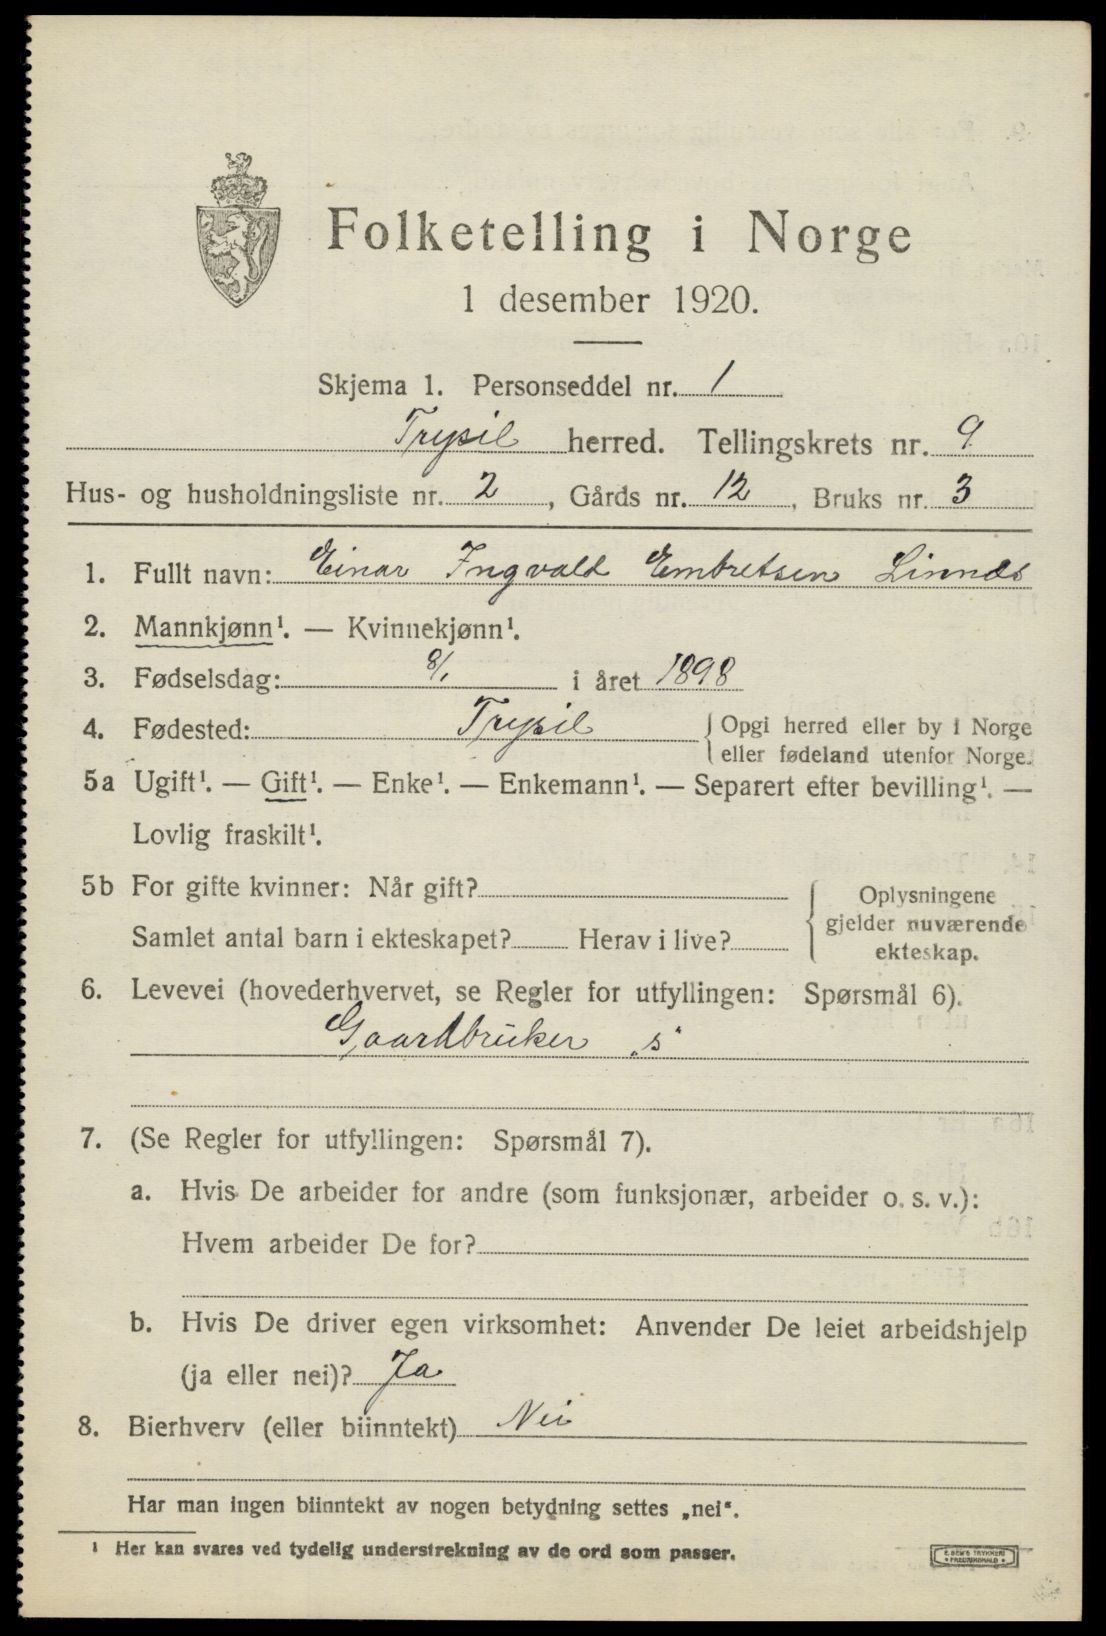 Folketelling i Norge
1 desember 1920.
Skjema 1. Personseddel nr. 1
Trysil herred. Tellingskrets nr. 9
Hus- og husholdningsliste nr. 2, Gårds nr. 12, Bruks nr. 3
1. Fullt navn: Einar Ingvald Embretsen Linnæs
2. Mannkjønn¹. — Kvinnekjønn¹.
3. Fødselsdag: 8/1 i året 1898
4. Fødested: Trysil { Opgi herred eller by i Norge
eller fødeland utenfor Norge.
5a Ugift¹. — Gift¹. — Enke¹. — Enkemann¹. — Separert efter bevilling¹. —
Lovlig fraskilt¹.
5b For gifte kvinner: Når gift?
Samlet antal barn i ekteskapet? Herav i live?
Oplysningene
gjelder nuværende
ekteskap.
6. Levevei (hovederhvervet, se Regler for utfyllingen: Spørsmål 6).
Gaardbruker „s"
7. (Se Regler for utfyllingen: Spørsmål 7).
a. Hvis De arbeider for andre (som funksjonær, arbeider o. s. v.):
Hvem arbeider De for?
b. Hvis De driver egen virksomhet: Anvender De leiet arbeidshjelp
(ja eller nei)? Ja
8. Bierhverv (eller biinntekt) Nei
Har man ingen biinntekt av nogen betydning settes „nei“.
¹ Her kan svares ved tydelig understrekning av de ord som passer.